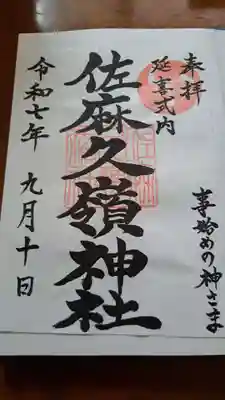 奉拝
延喜式内
事始めの神さま
佐麻久嶺神社
令和七年 九月十日